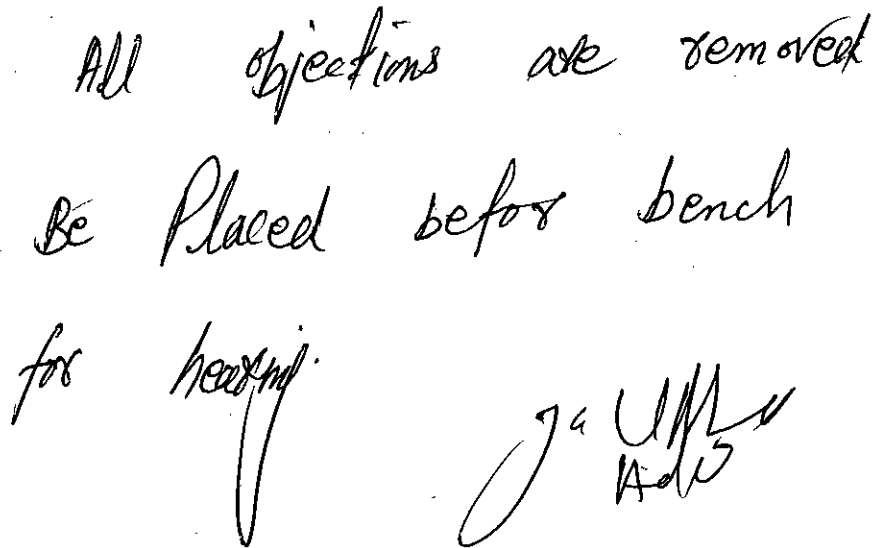 All objections are removed
Be Placed befor bench
for hearing.
Adv